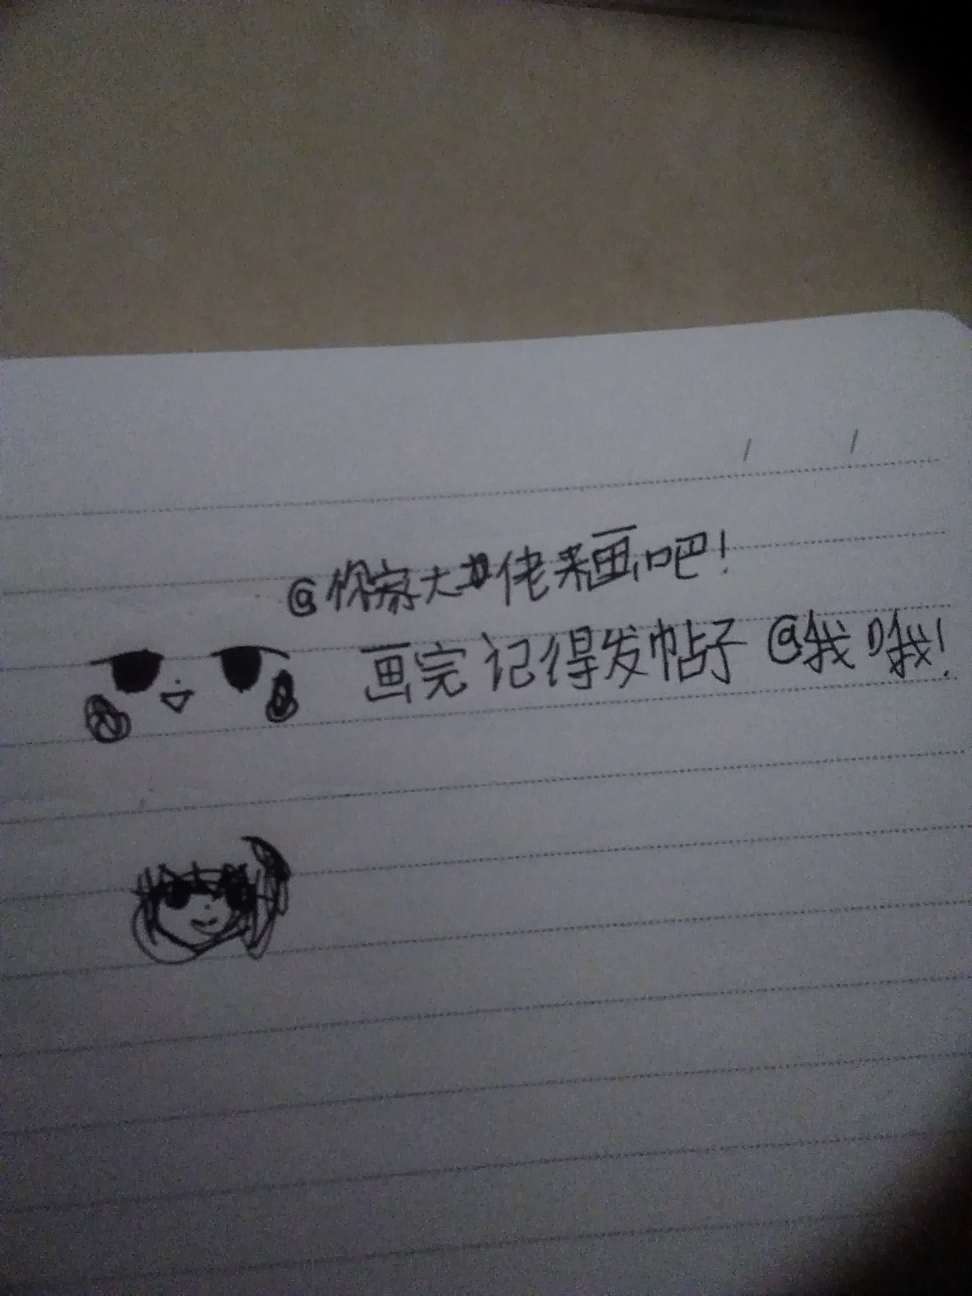 @你家大佬来画吧!
画完记得发帖子@我哦!